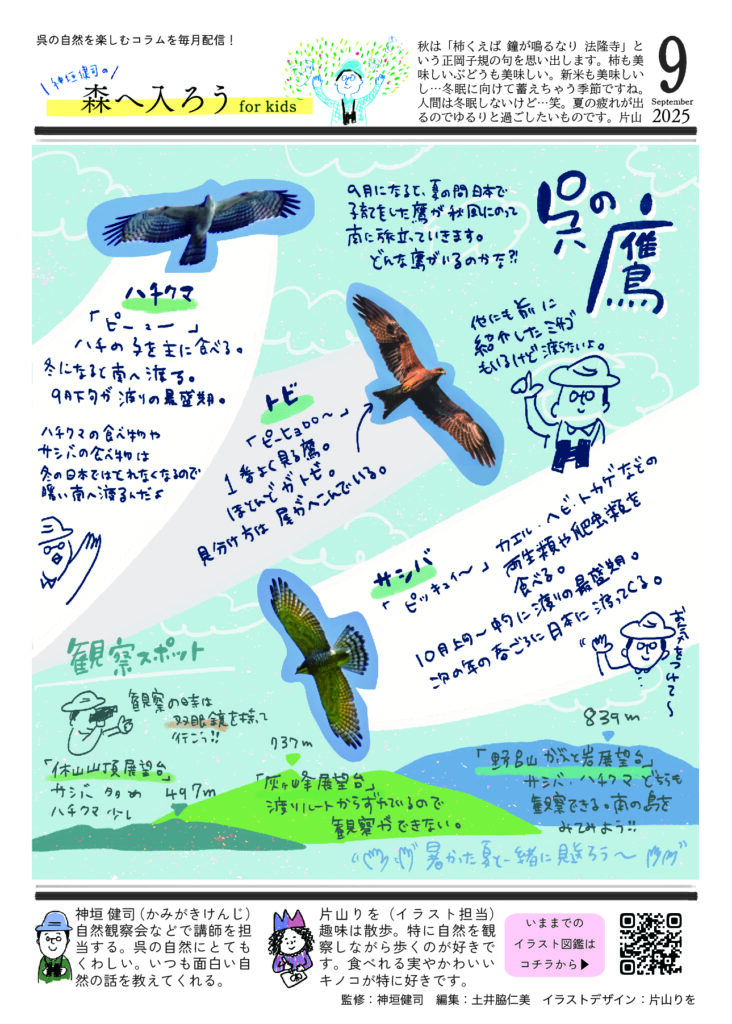 呉の自然を楽しむコラムを毎月配信！
神垣健司の
森へ入ろう for kids~
秋は「柿くえば 鐘が鳴るなり 法隆寺」と
いう正岡子規の句を思い出します。柿も美
味しいぶどうも美味しい。新米も美味しい
し…冬眠に向けて蓄えちゃう季節ですね。
人間は冬眠しないけど…笑。夏の疲れが出
るのでゆるりと過ごしたいものです。片山
9
September
2025
呉の鷹
9月になると、夏の間日本で
子育てをした鷹が秋風にのって
南に旅立っていきます。
どんな鷹がいるのかな?!
ハチクマ
「ピーュー」
ハチの子を主に食べる。
冬になると南へ渡る。
9月下旬が渡りの最盛期。
ハチクマの食べ物や
サシバの食べ物は
冬の日本ではとれなくなるので
暖い南へ渡るんだよ
他にも前に
紹介したミサゴ
もいるけど渡らないよ。
トビ
「ピーヒョロロ〜」
1番よく見る鷹。
ほとんどがトビ。
見分け方は尾がへこんでいる。
サシバ
「ピッキュイ〜」
カエル・ヘビ・トカゲなどの
両生類や爬虫類を
食べる。
10月上旬〜中旬に渡りの最盛期。
次の年の春ごろに日本に渡ってくる。
お気をつけて〜
観察スポット
観察の時は
双眼鏡を持って
行こう!!
「休山山頂展望台」
サシバ多め
ハチクマ少し
497m
737m
「灰ヶ峰展望台」
渡りルートからずれているので
観察ができない。
839m
「野呂山かぶと岩展望台」
サシバ・ハチクマどちらも
観察できる。南の島を
みてみよう!!
暑かった夏と一緒に見送ろう〜
神垣 健司（かみがきけんじ）
自然観察会などで講師を担
当する。呉の自然にとても
くわしい。いつも面白い自
然の話を教えてくれる。
片山りを（イラスト担当）
趣味は散歩。特に自然を観
察しながら歩くのが好きで
す。食べれる実やかわいい
キノコが特に好きです。
いままでの
イラスト図鑑は
コチラから▶
監修：神垣健司　編集：土井脇仁美　イラストデザイン：片山りを